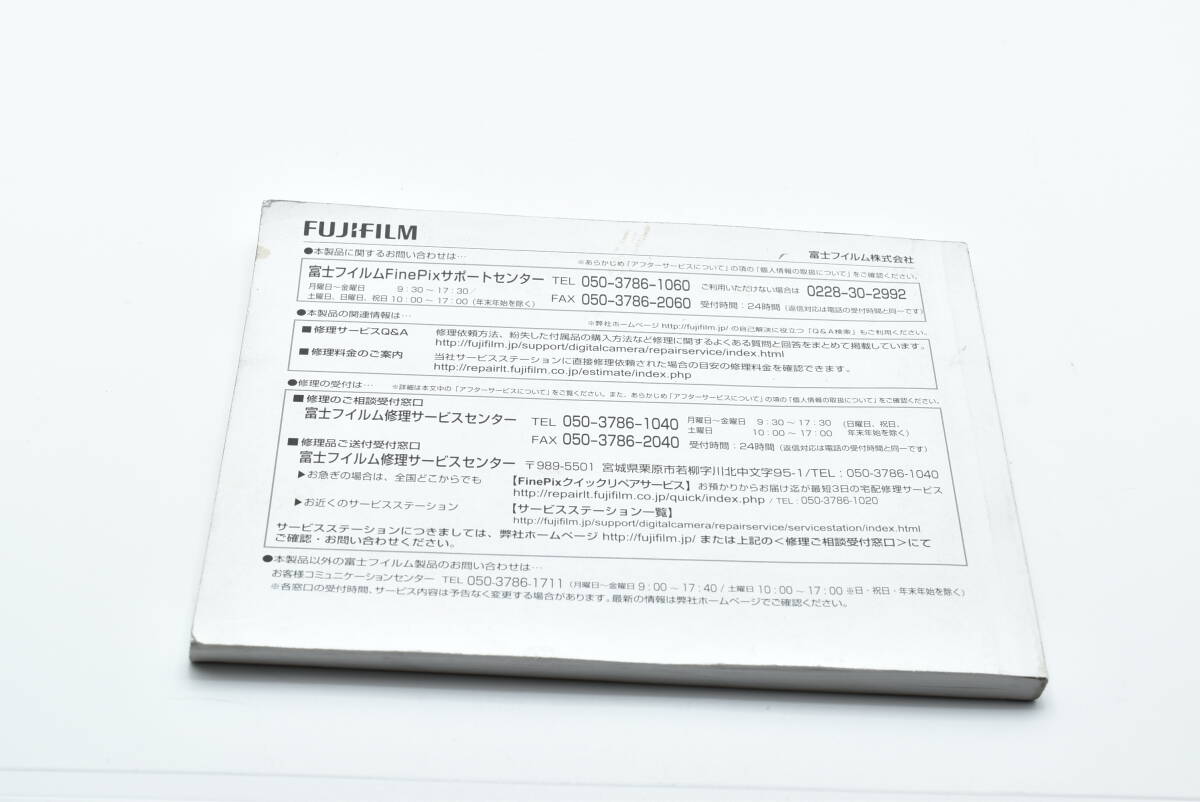 FUJIFILM
富士フイルム株式会社
●本製品に関するお問い合わせは…
※あらかじめ「アフターサービスについて」の項の「個人情報の取扱について」をご確認ください。
富士フイルムFinePixサポートセンター TEL 050-3786-1060 ご利用いただけない場合は 0228-30-2992
月曜日～金曜日 9:30～17:30/
土曜日、日曜日、祝日 10:00～17:00(年末年始を除く) FAX 050-3786-2060 受付時間:24時間(返信対応は電話の受付時間と同一です)
●本製品の関連情報は…
※弊社ホームページ http://fujifilm.jp/ の自己解決に役立つ「Q&A検索」もご利用ください。
■修理サービスQ&A 修理依頼方法、紛失した付属品の購入方法など修理に関するよくある質問と回答をまとめて掲載しています。
http://fujifilm.jp/support/digitalcamera/repairservice/index.html
■修理料金のご案内 当社サービスステーションに直接修理依頼された場合の目安の修理料金を確認できます。
http://repairlt.fujifilm.co.jp/estimate/index.php
●修理の受付は…
※詳細は本文中の「アフターサービスについて」をご覧ください。また、あらかじめ「アフターサービスについて」の項の「個人情報の取扱について」をご確認ください。
■修理のご相談受付窓口
富士フイルム修理サービスセンター TEL 050-3786-1040 月曜日～金曜日 9:30～17:30 (日曜日、祝日、
土曜日 10:00～17:00 年末年始を除く)
FAX 050-3786-2040 受付時間:24時間(返信対応は電話の受付時間と同一です)
■修理品ご送付受付窓口
富士フイルム修理サービスセンター 〒989-5501 宮城県栗原市若柳字川北中文字95-1/TEL:050-3786-1040
▶お急ぎの場合は、全国どこからでも 【FinePixクイックリペアサービス】お預かりからお届け迄が最短3日の宅配修理サービス
http://repairlt.fujifilm.co.jp/quick/index.php / TEL:050-3786-1020
▶お近くのサービスステーション 【サービスステーション一覧】
http://fujifilm.jp/support/digitalcamera/repairservice/servicestation/index.html
サービスステーションにつきましては、弊社ホームページ http://fujifilm.jp/ または上記の<修理ご相談受付窓口>にて
ご確認・お問い合わせください。
●本製品以外の富士フイルム製品のお問い合わせは…
お客様コミュニケーションセンター TEL 050-3786-1711 (月曜日～金曜日 9:00～17:40/土曜日 10:00～17:00 ※日・祝日・年末年始を除く)
※各窓口の受付時間、サービス内容は予告なく変更する場合があります。最新の情報は弊社ホームページでご確認ください。